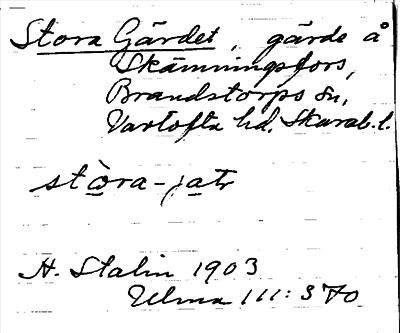 Stora Gärdet, gärde å
Skämningsfors,
Brandstorps sn,
Vartofta hd, Skarab. l.
stòra-jatr
H. Stalin 1903
Ulma 111: 370